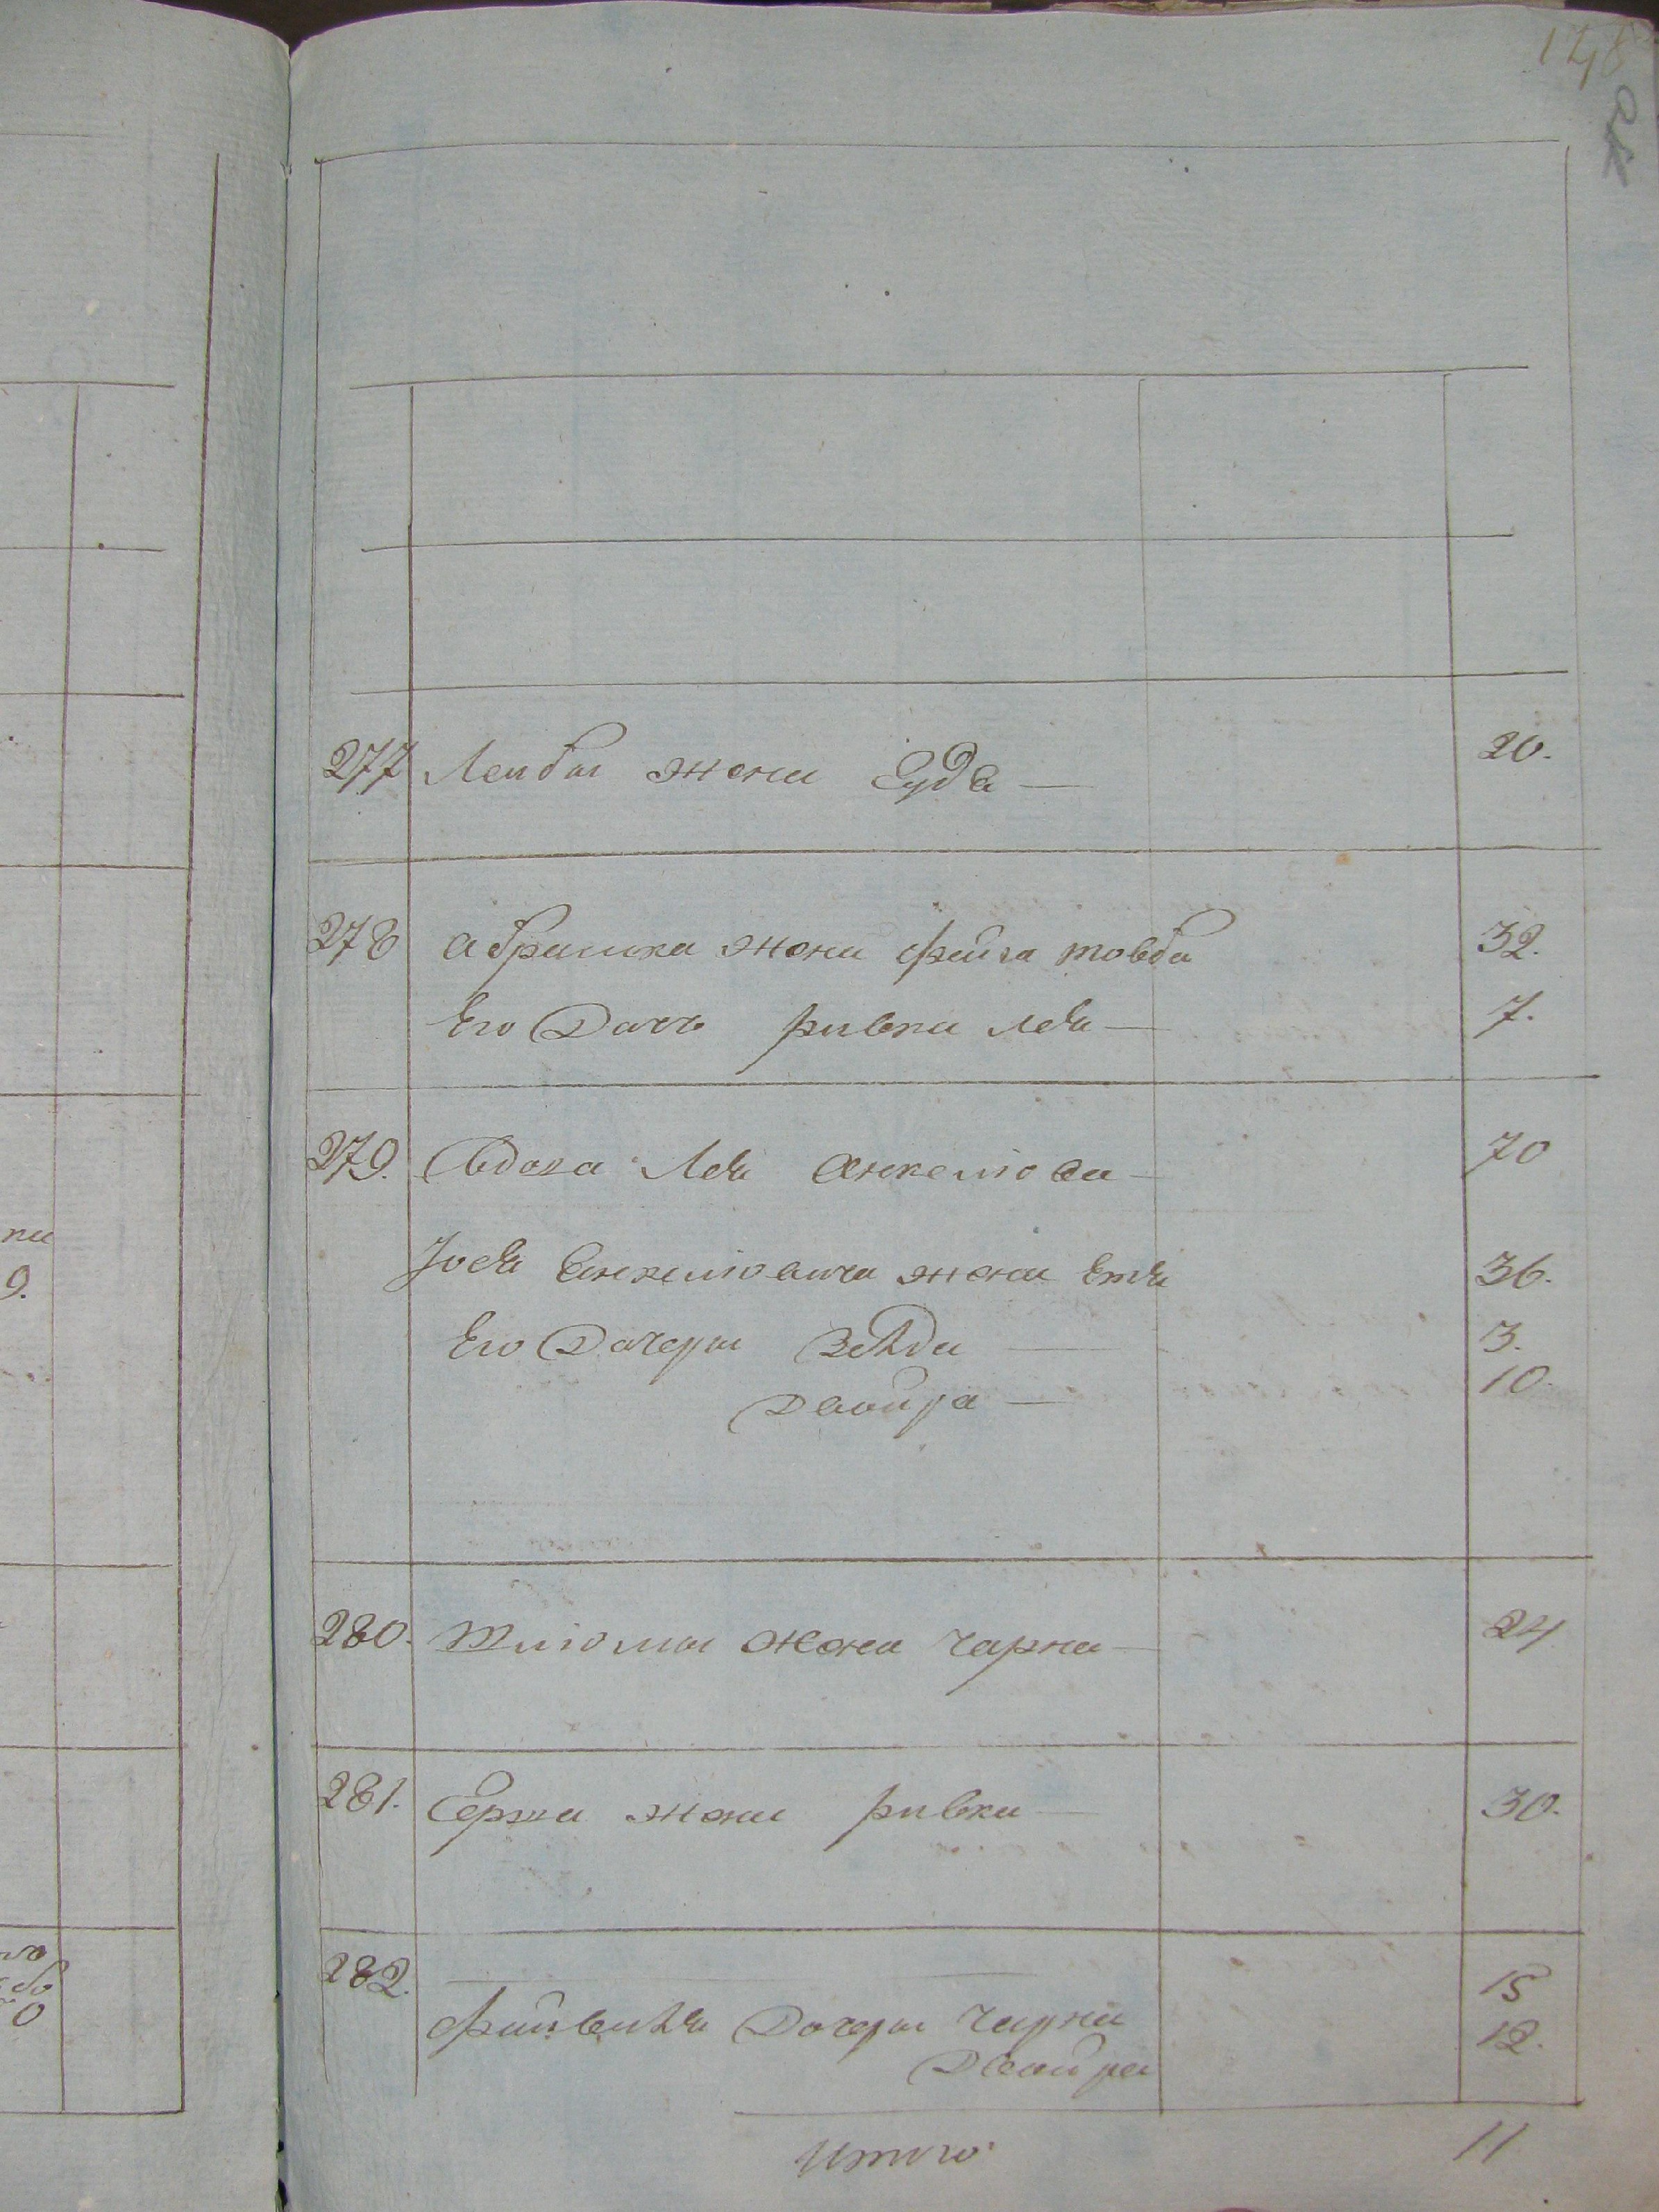 148
277 Лейбы жена Гуда — 20.
278 Абрамка жена Файга товба 32.
Его Дочь ривка лея — 7.
279. Вдова Лея Янкелiова — 70
Іося Янкелiовича жена Етля 36.
Его Дочеры Зелда — 3.
Двойра — 10.
280. Шлiомы жена Чарна — 24
281. Герша жена ривка — 30.
282.
Файвеля Дочеры Чарна 15
Двойра 12.
Итого 11
ка
9.
го
бо
0